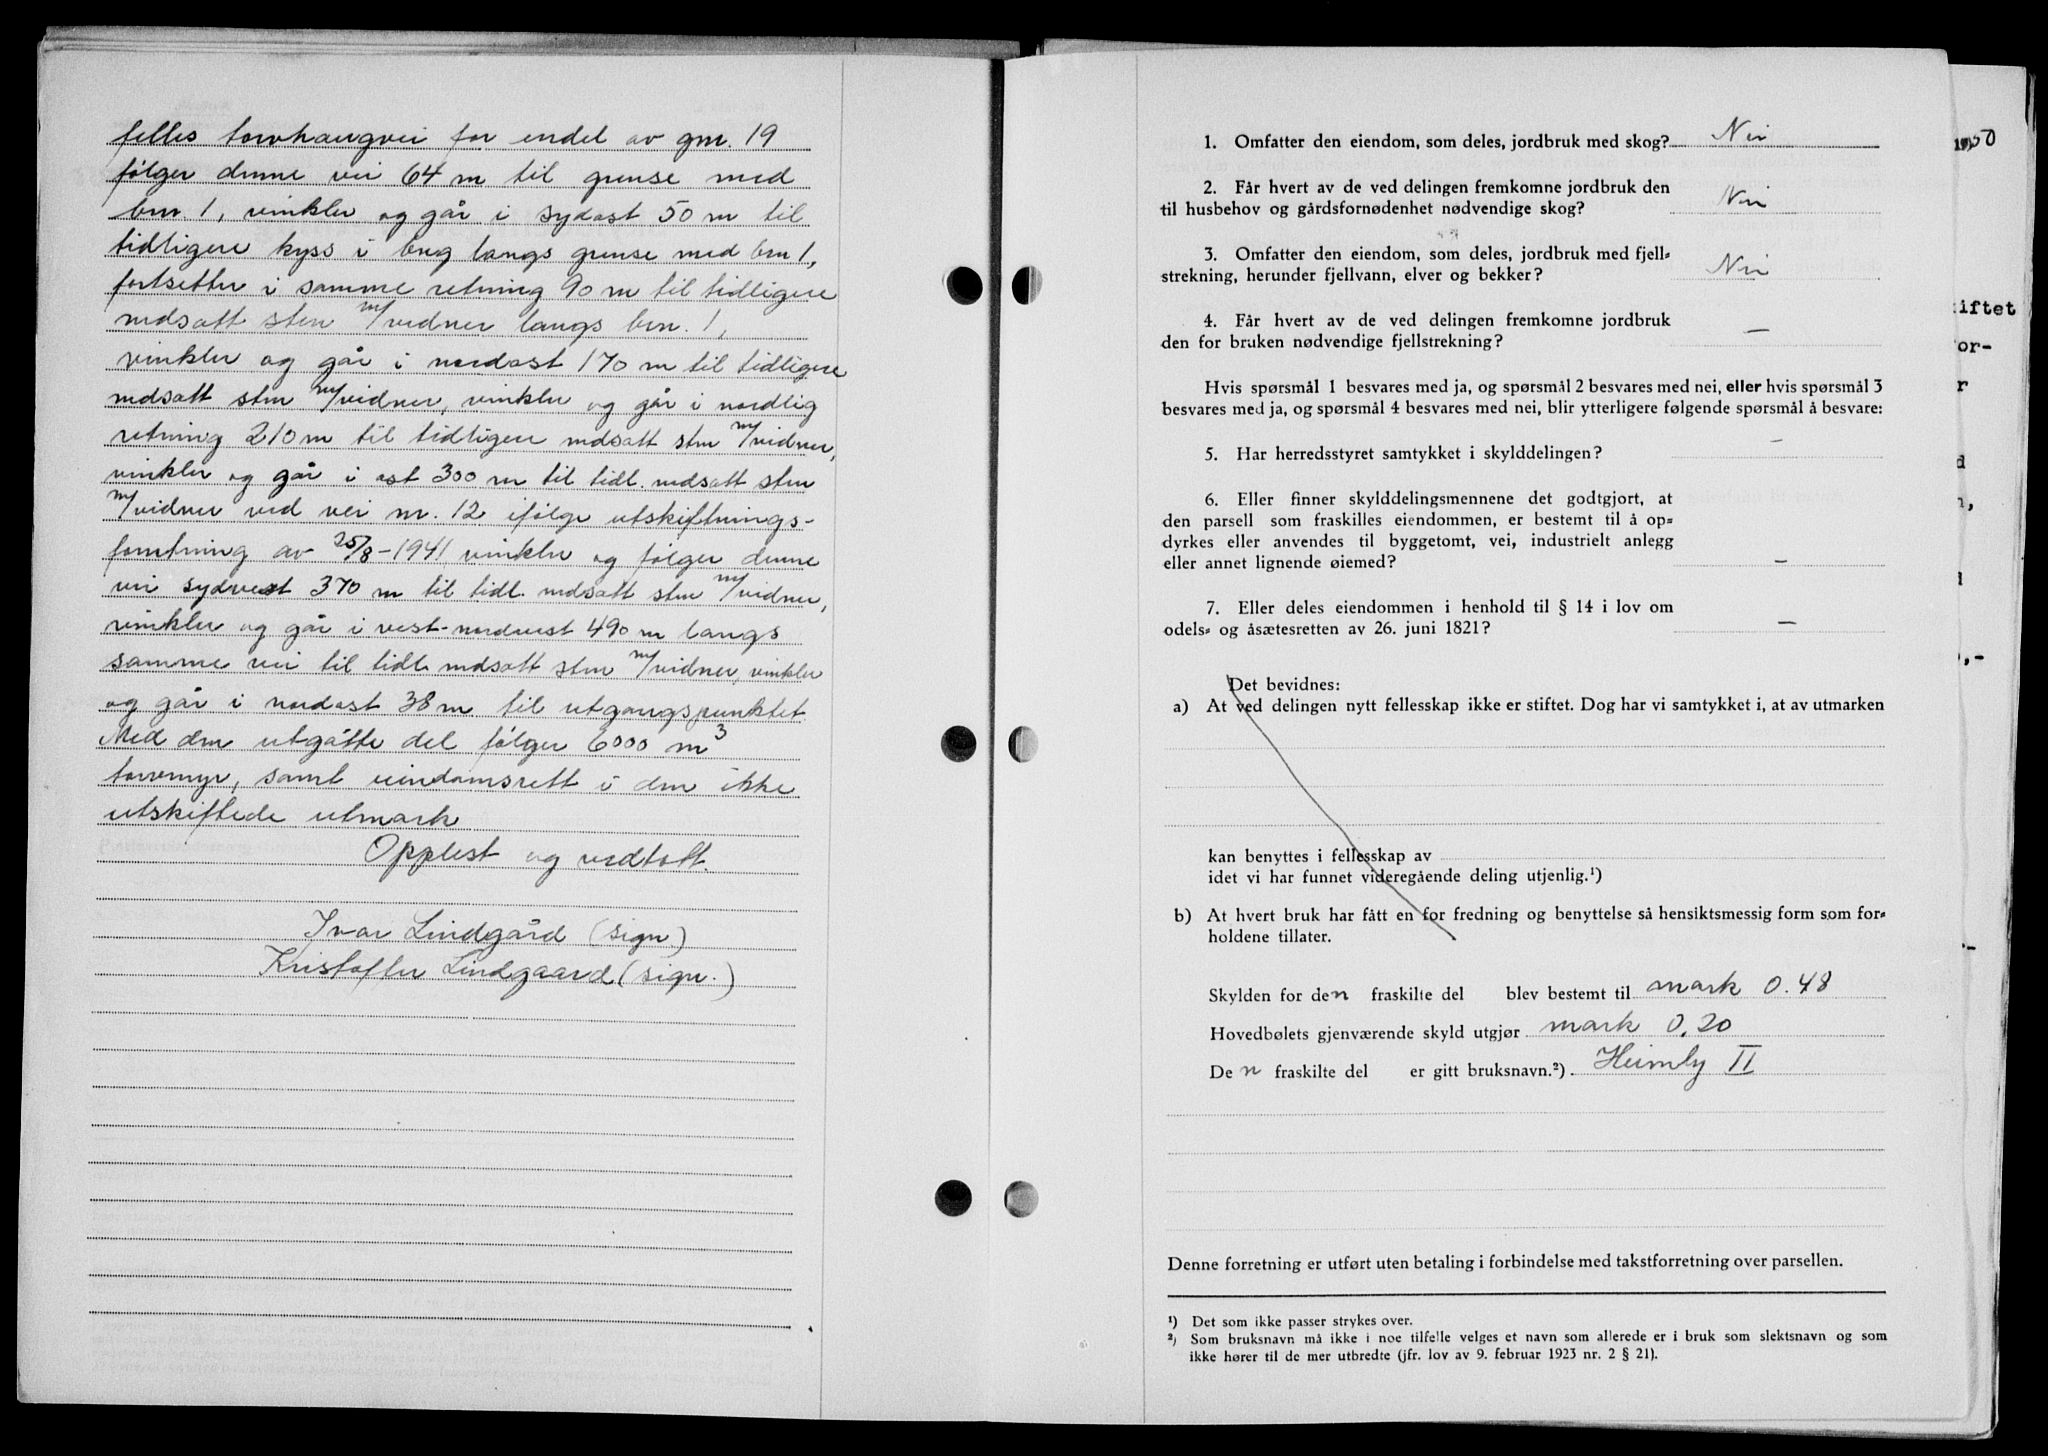 felles torvhaugvei for endel av gnr. 19
følger denne vei 64 m til grense med
bnr. 1, vinkler og går i sydøst 50 m til
tidligere kyss i berg langs grense med bnr 1,
fortsetter i samme retning 90 m til tidligere
nedsatt sten m/vidner langs bnr. 1,
vinkler og går i nordøst 170 m til tidligere
nedsatt sten m/vidner, vinkler og går i nordlig
retning 210 m til tidligere nedsatt sten m/vidner,
vinkler og går i øst 300 m til tidl. nedsatt sten
m/vidner ved vei nr. 12 ifølge utskiftnings-
forretning av 25/8-1941, vinkler og følger denne
vei sydvest 370 m til tidl. nedsatt sten m/vidner,
vinkler og går i vest-nordvest 490 m langs
samme vei til tidl. nedsatt sten m/vidner, vinkler
og går i nordøst 38 m til utgangspunktet.
Med den utgåtte del følger 6000 m³
torvmyr, samt eiendomsrett i den ikke
utskiftede utmark
Opplest og vedtatt.
Ivar Lindgård (sign)
Kristoffer Lindgaard (sign.)
1. Omfatter den eiendom, som deles, jordbruk med skog? Nei
2. Får hvert av de ved delingen fremkomne jordbruk den
til husbehov og gårdsfornødenhet nødvendige skog? Nei
3. Omfatter den eiendom, som deles, jordbruk med fjell-
strekning, herunder fjellvann, elver og bekker? Nei
4. Får hvert av de ved delingen fremkomne jordbruk
den for bruken nødvendige fjellstrekning? —
Hvis spørsmål 1 besvares med ja, og spørsmål 2 besvares med nei, eller hvis spørsmål 3
besvares med ja, og spørsmål 4 besvares med nei, blir ytterligere følgende spørsmål å besvare:
5. Har herredsstyret samtykket i skylddelingen? —
6. Eller finner skylddelingsmennene det godtgjort, at
den parsell som fraskilles eiendommen, er bestemt til å op-
dyrkes eller anvendes til byggetomt, vei, industrielt anlegg
eller annet lignende øiemed? —
7. Eller deles eiendommen i henhold til § 14 i lov om
odels- og åsætesretten av 26. juni 1821? —
Det bevidnes:
a) At ved delingen nytt fellesskap ikke er stiftet. Dog har vi samtykket i, at av utmarken
kan benyttes i fellesskap av
idet vi har funnet videregående deling utjenlig.¹)
b) At hvert bruk har fått en for fredning og benyttelse så hensiktsmessig form som for-
holdene tillater.
Skylden for den fraskilte del blev bestemt til mark 0.48
Hovedbølets gjenværende skyld utgjør mark 0.20
Den fraskilte del er gitt bruksnavn.²) Heimly II
Denne forretning er utført uten betaling i forbindelse med takstforretning over parsellen.
¹) Det som ikke passer strykes over.
²) Som bruksnavn må ikke i noe tilfelle velges et navn som allerede er i bruk som slektsnavn og som
ikke hører til de mer utbredte (jfr. lov av 9. februar 1923 nr. 2 § 21).
1950
iftet
or-
r
d
n,
,-